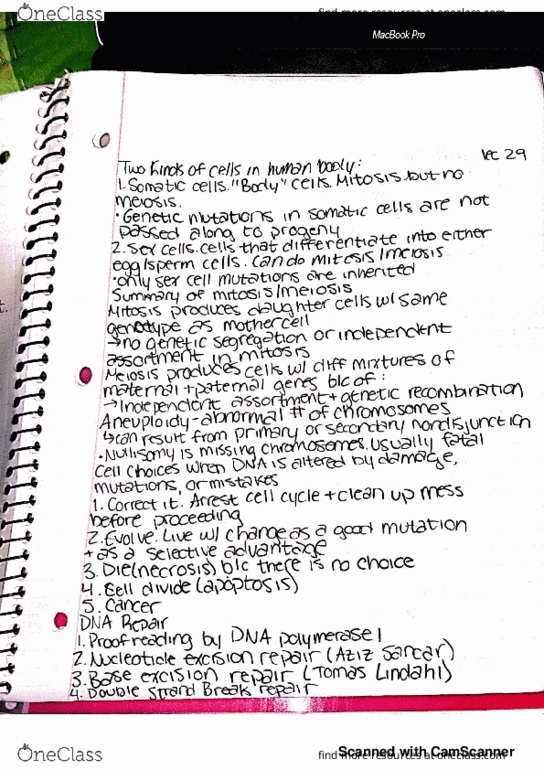 OneClass
find more resources at oneclass.com
MacBook Pro
lec 29
Two kinds of cells in human body:
1. Somatic cells. "Body" cells. Mitosis but no
meiosis.
• Genetic mutations in somatic cells are not
passed along to progeny
2. Sex cells. cells that differentiate into either
egg/sperm cells. Can do mitosis/meiosis
• only sex cell mutations are inherited
Summary of mitosis/meiosis
Mitosis produces daughter cells w/ same
genotype as mother cell
→ no genetic segregation or independent
assortment in mitosis
Meiosis produces cells w/ diff mixtures of
maternal + paternal genes b/c of:
→ Independent assortment + genetic recombination
Aneuploidy - abnormal # of chromosomes
↳ can result from primary or secondary nondisjunction
• Nullisomy is missing chromosomes. Usually fatal
Cell choices when DNA is altered by damage,
mutations, or mistakes
1. Correct it. Arrest cell cycle + clean up mess
before proceeding
2. Evolve. Live w/ change as a good mutation
+ as a selective advantage
3. Die (necrosis) b/c there is no choice
4. Cell divide (apoptosis)
5. Cancer
DNA Repair
1. Proofreading by DNA polymerase 1
2. Nucleotide excision repair (Aziz Sancar)
3. Base excision repair (Tomas Lindahl)
4. Double Strand Breaks repair
OneClass
find more resources at oneclass.com
Scanned with CamScanner